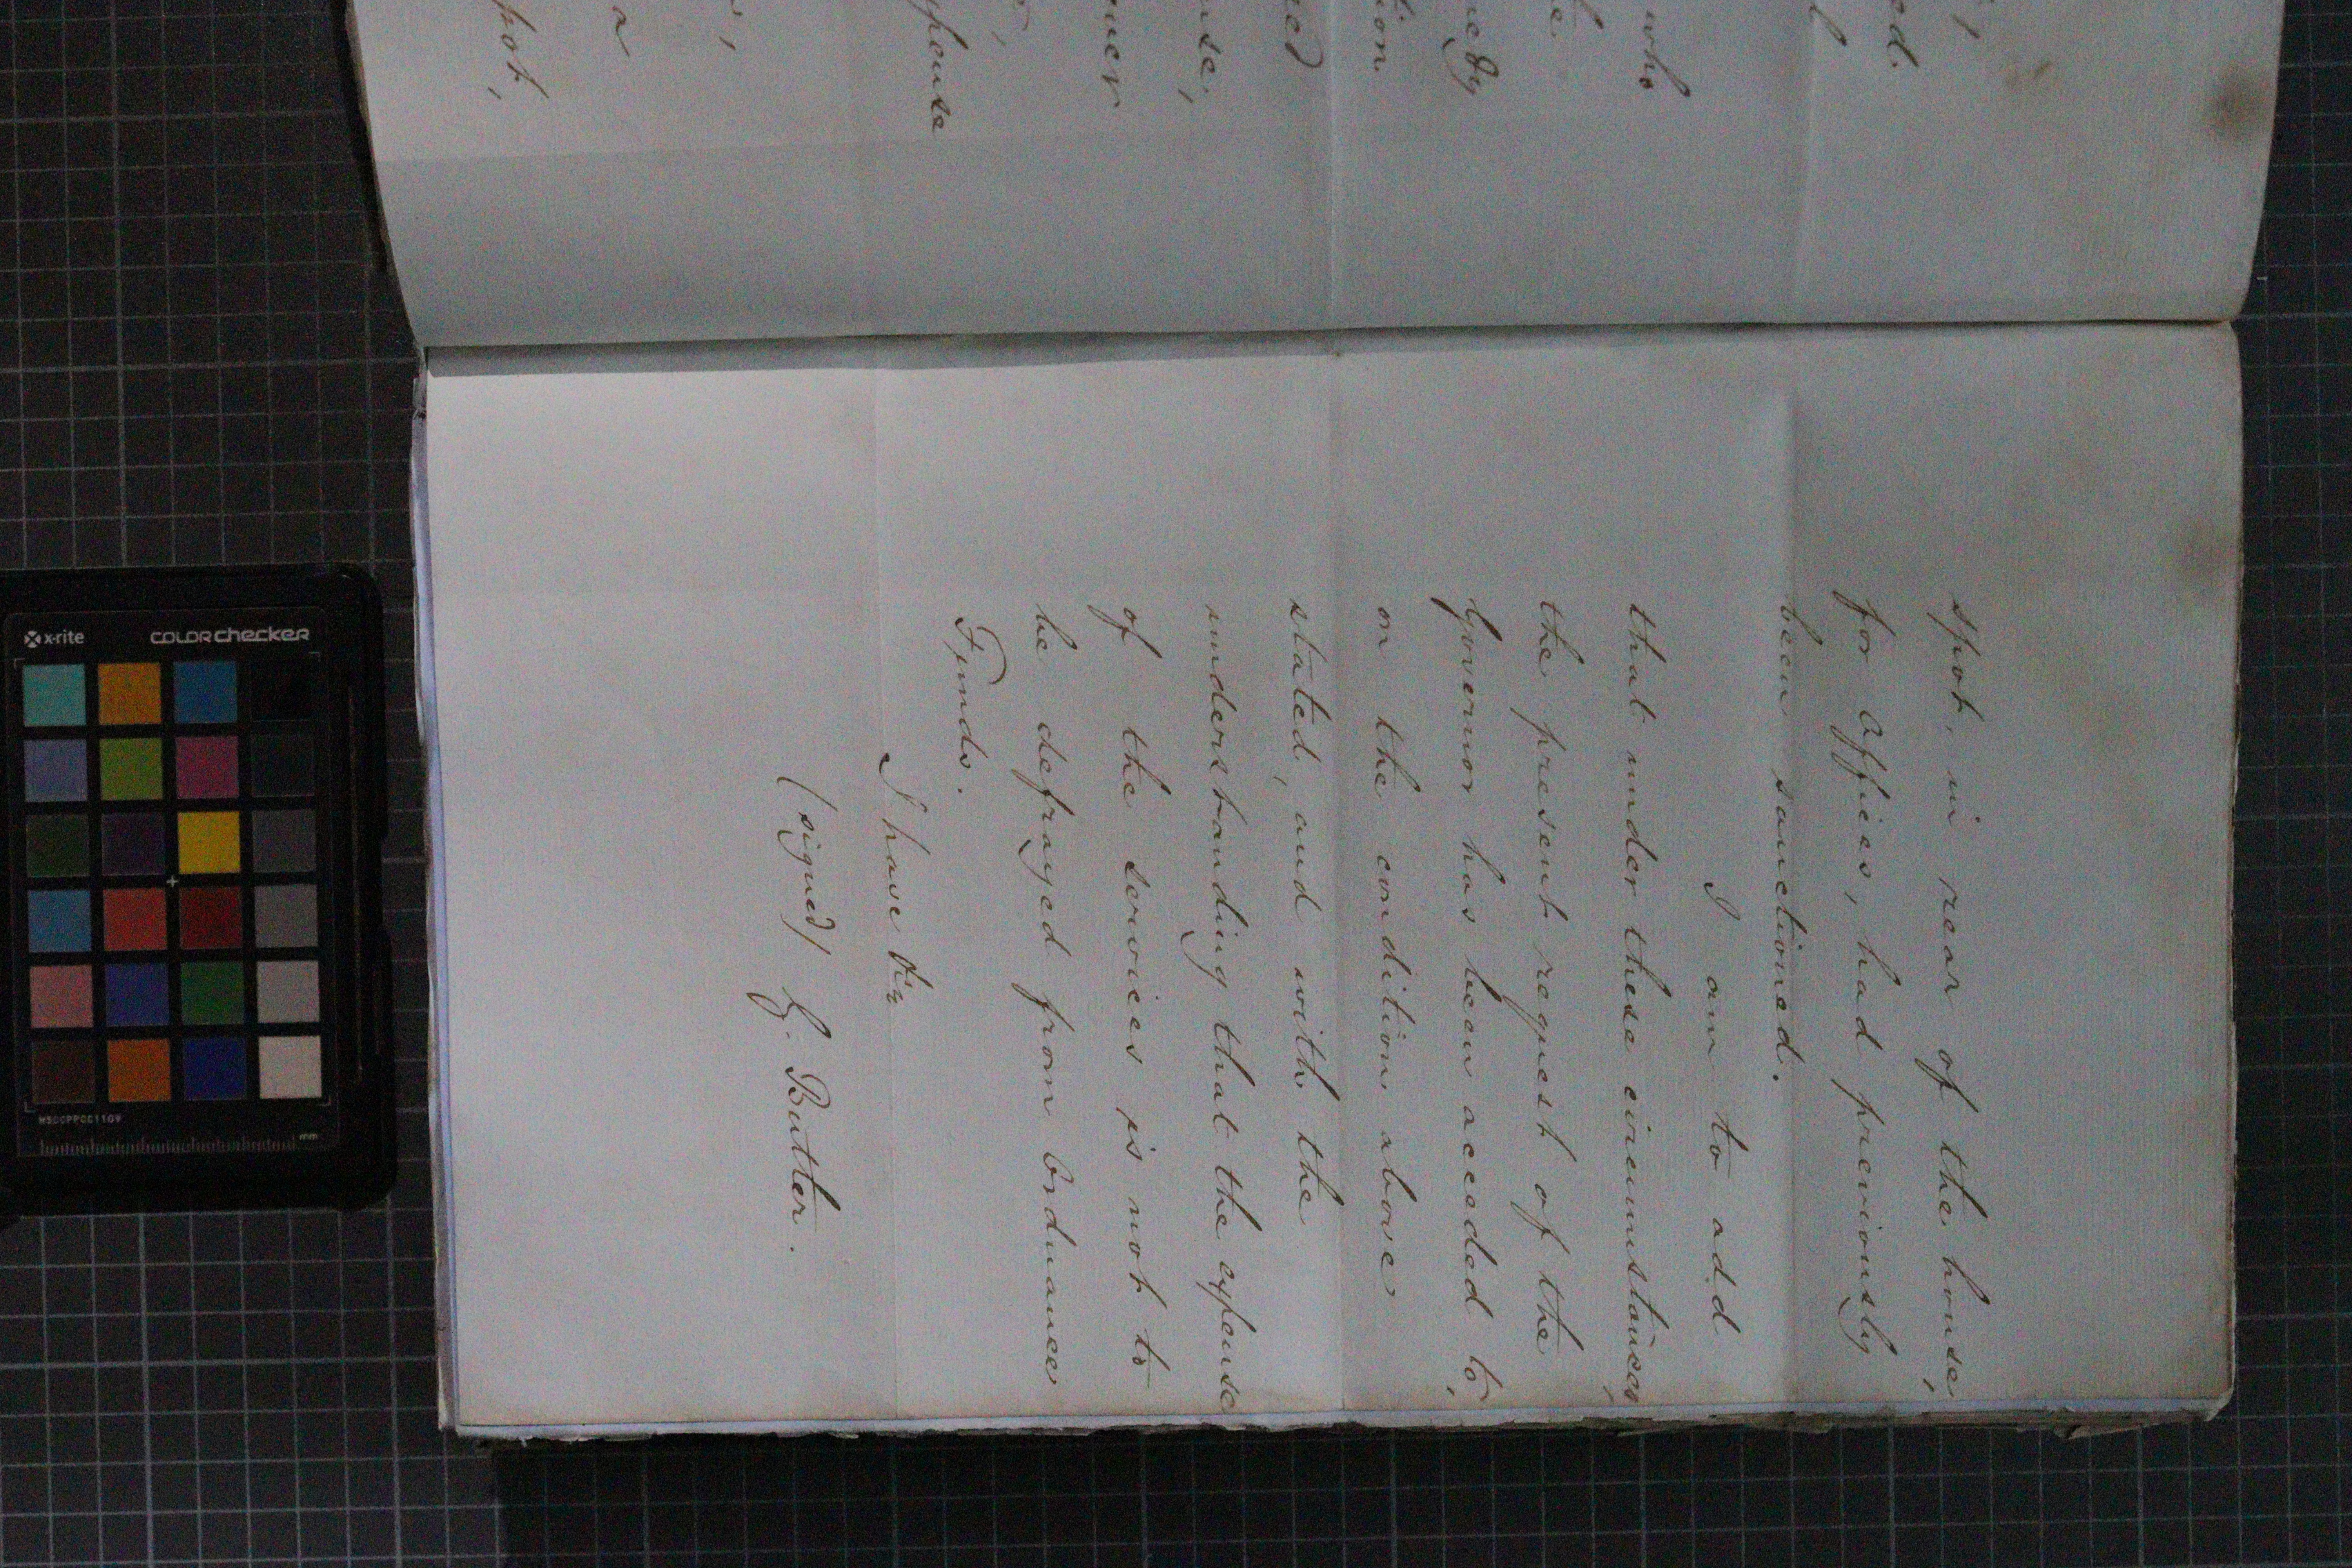 spot, in rear of the house,
for Offices, had previously
been sanctioned.
I am to add
that under these circumstances,
the present request of the
Governor has been acceded to,
on the condition above
stated, and with the
understanding that the expense
of the services is not to
be defrayed from Ordnance
Funds.
I have &c
(signed) G. Butler.
ed.
who
tion
ned
nse,
ner
xpense
a
pot,
x-rite
COLORchecker
MSCCPPCC1109
mm